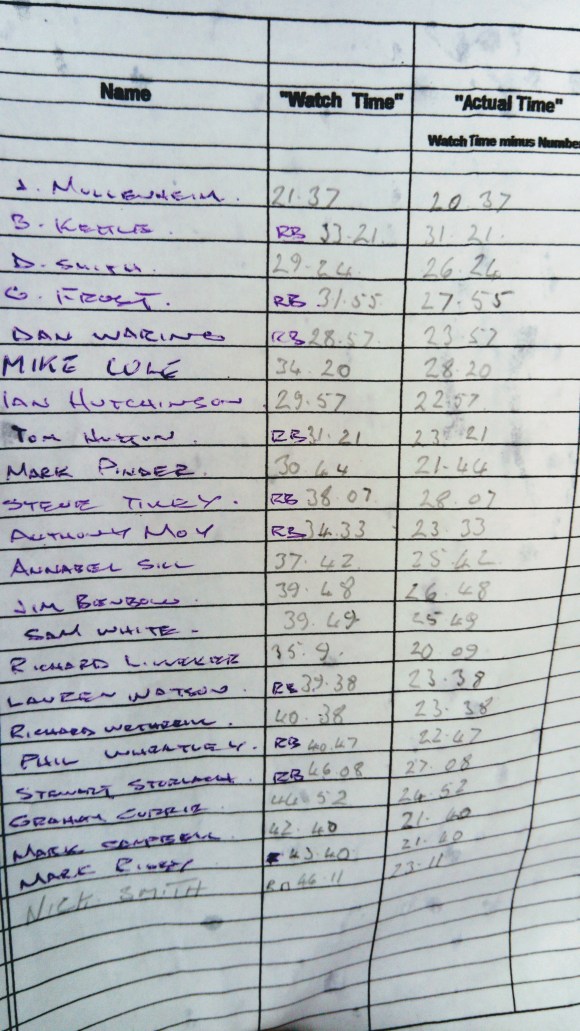 Name "Watch Time" "Actual Time"
Watch Time minus Number
J. MULLENHEIM. 21.37 20.37
B. KETTLE. RB 33.21. 31.21.
D. SMITH. 29.24 26.24
G. FROST. RB 31.55 27.55
DAN WARING RB 28.57 23.57
MIKE COLE 34.20 28.20
IAN HUTCHINSON 29.57 22.57
TOM HUTTON. RB 31.21 23.21
MARK PINDER. 30.44 21.44
STEVE TILLEY. RB 38.07 28.07
ANTHONY MOY RB 34.33 23.33
ANNABEL SILL 37.42 25.42
JIM BENBOW. 39.48 26.48
SAM WHITE - 39.49 25.49
RICHARD 35.9. 20 09
LAUREN WATSON. RB 39.38 23.38
RICHARD WETHERELL. 40.38 23.38
PHIL WHEATLEY. RB 40.47 22.47
STEWART RB 46.08 27.08
GRAHAM CURRIE 44.52 24.52
MARK CAMPBELL 42.40 21.40
MARK 43.40 21.40
NICK SMITH 46.11 23.11